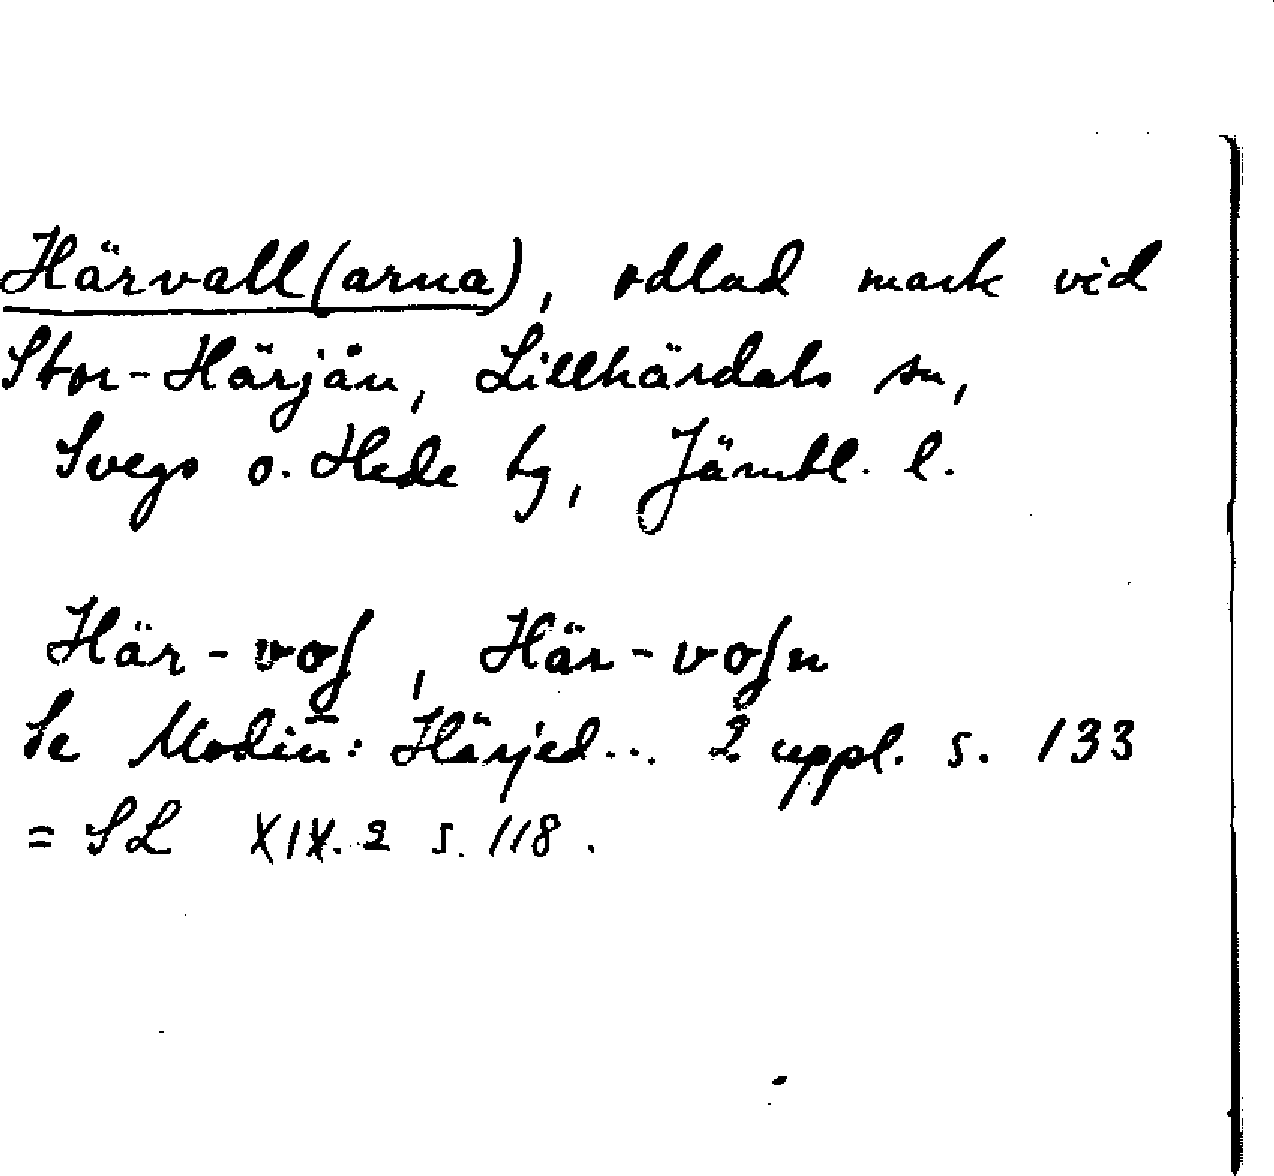 Härvall(arna), odlad mark vid
Stor-Härjån, Lillhärdals sn,
Svegs o. Hede tg, Jämtl. l.
Här-voʃ, Här-voʃn
Se Modin: Härjed... 2 uppl. s. 133
= SL XIX. 2 s. 118.